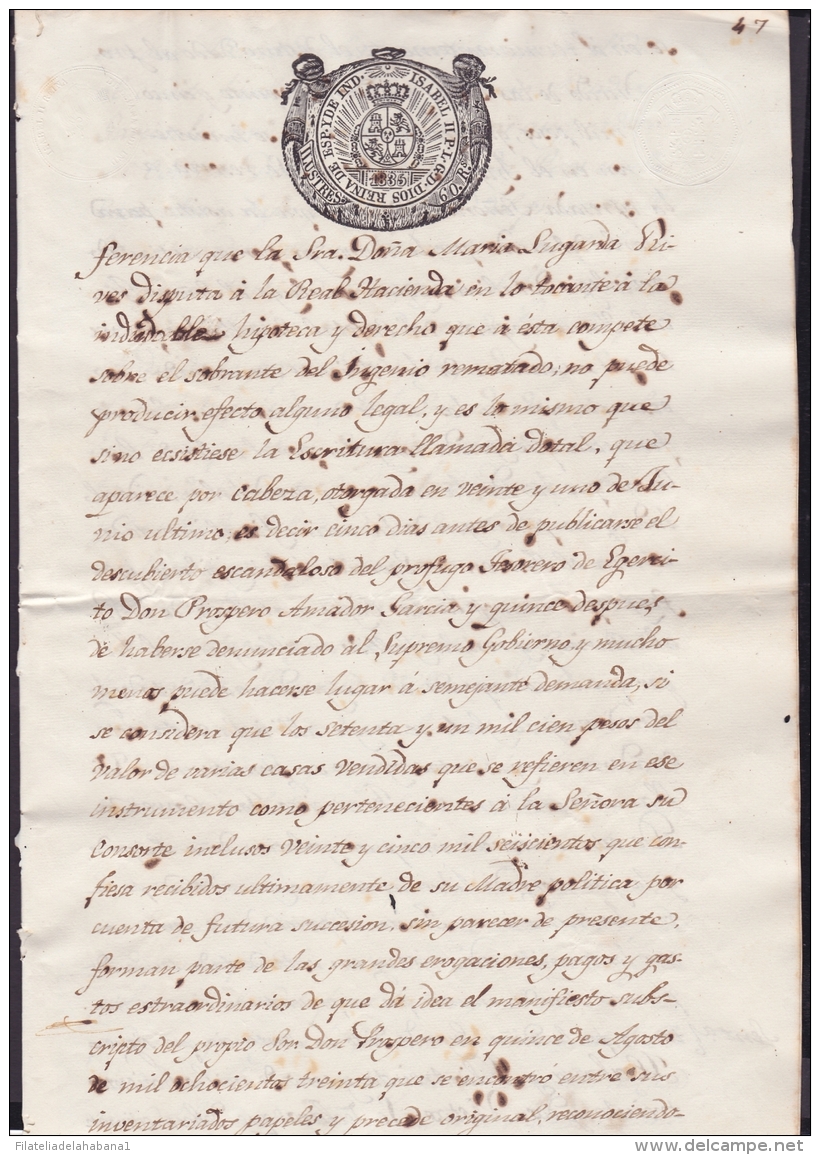 47
ISABEL II P. L. G. D. DIOS REINA DE ESP. Y DE IND.
1835
ferencia que la Sra. Doña Maria Lugarda Ri-
ves disputa á la Real Hacienda en lo tocante á la
indudable hipoteca y derecho que á ésta compete
sobre el sobrante del Ingenio rematado, no puede
producir efecto alguno legal, y es lo mismo que
si no ecsistiese la Escritura llamada dotal, que
aparece por cabeza, otorgada en veinte y uno de Ju-
nio ultimo, es decir cinco dias antes de publicarse el
descubierto escandaloso del profugo Tesorero de Egerci-
to Don Prospero Amador Garcia y quince despues
de haberse denunciado al Supremo Gobierno, y mucho
menos puede hacerse lugar á semejante demanda, si
se considera que los setenta y un mil cien pesos del
valor de varias casas vendidas que se refieren en ese
instrumento como pertenecientes á la Señora su
Consorte inclusos veinte y cinco mil seiscientos que con-
fiesa recibidos ultimamente de su Madre politica por
cuenta de futura succesion, sin parecer de presente,
forman parte de las grandes erogaciones, pagos y gas-
tos estraordinarios de que dá idea el manifiesto subs-
cripto del propio Sor. Don Prospero en quince de Agosto
de mil ochocientos treinta que se encontró entre sus
inventariados papeles y precede original, reconociendo-
Filateliadelahabana1
delcampe.net